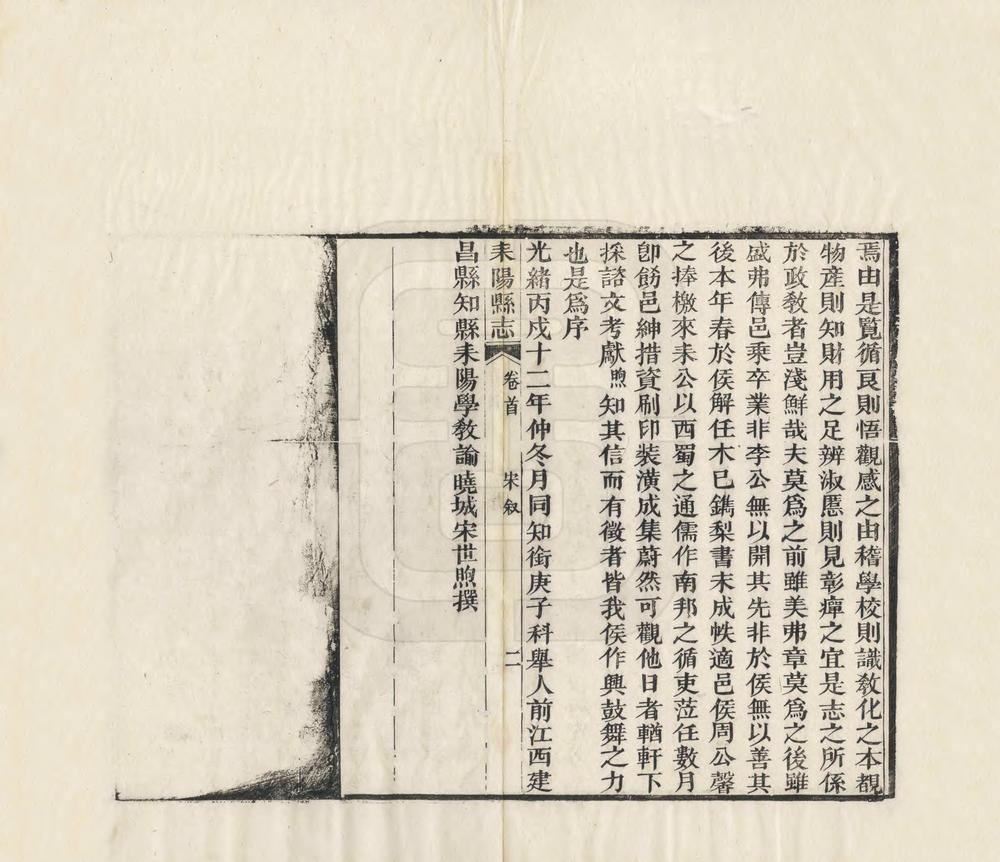 焉由是覽循良則悟觀感之由稽學校則識敎化之本覩
物產則知財用之足辨淑慝則見彰癉之宜是志之所係
於政敎者豈淺鮮哉夫莫爲之前雖美弗章莫爲之後雖
盛弗傳邑乘卒業非李公無以開其先非於侯無以善其
後本年春於侯解任木已鐫梨書未成帙適邑侯周公馨
之捧檄來耒公以西蜀之通儒作南邦之循吏莅任數月
卽飭邑紳措資刷印裝潢成集蔚然可觀他日者輶軒下
採諮文考獻煦知其信而有徵者皆我侯作興鼓舞之力
也是爲序
光緒丙戌十二年仲冬月同知銜庚子科舉人前江西建
耒陽縣志 卷首 宋敘 二
昌縣知縣耒陽學敎諭曉城宋世煦撰